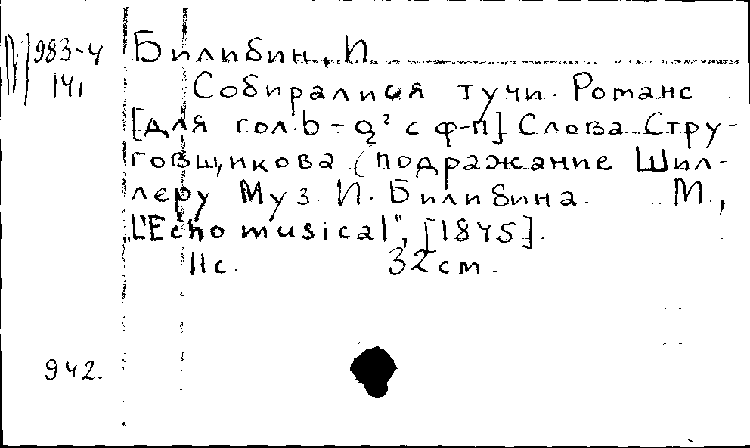 983-4
141
Билибин, И.
Собирались тучи. Романс
[для гол. b - g² с ф-п] Слова Стру-
говщикова (подражание Шил-
леру Муз. И. Билибина. М.,
L'Echo musical", [1845].
11с. 32см.
942.